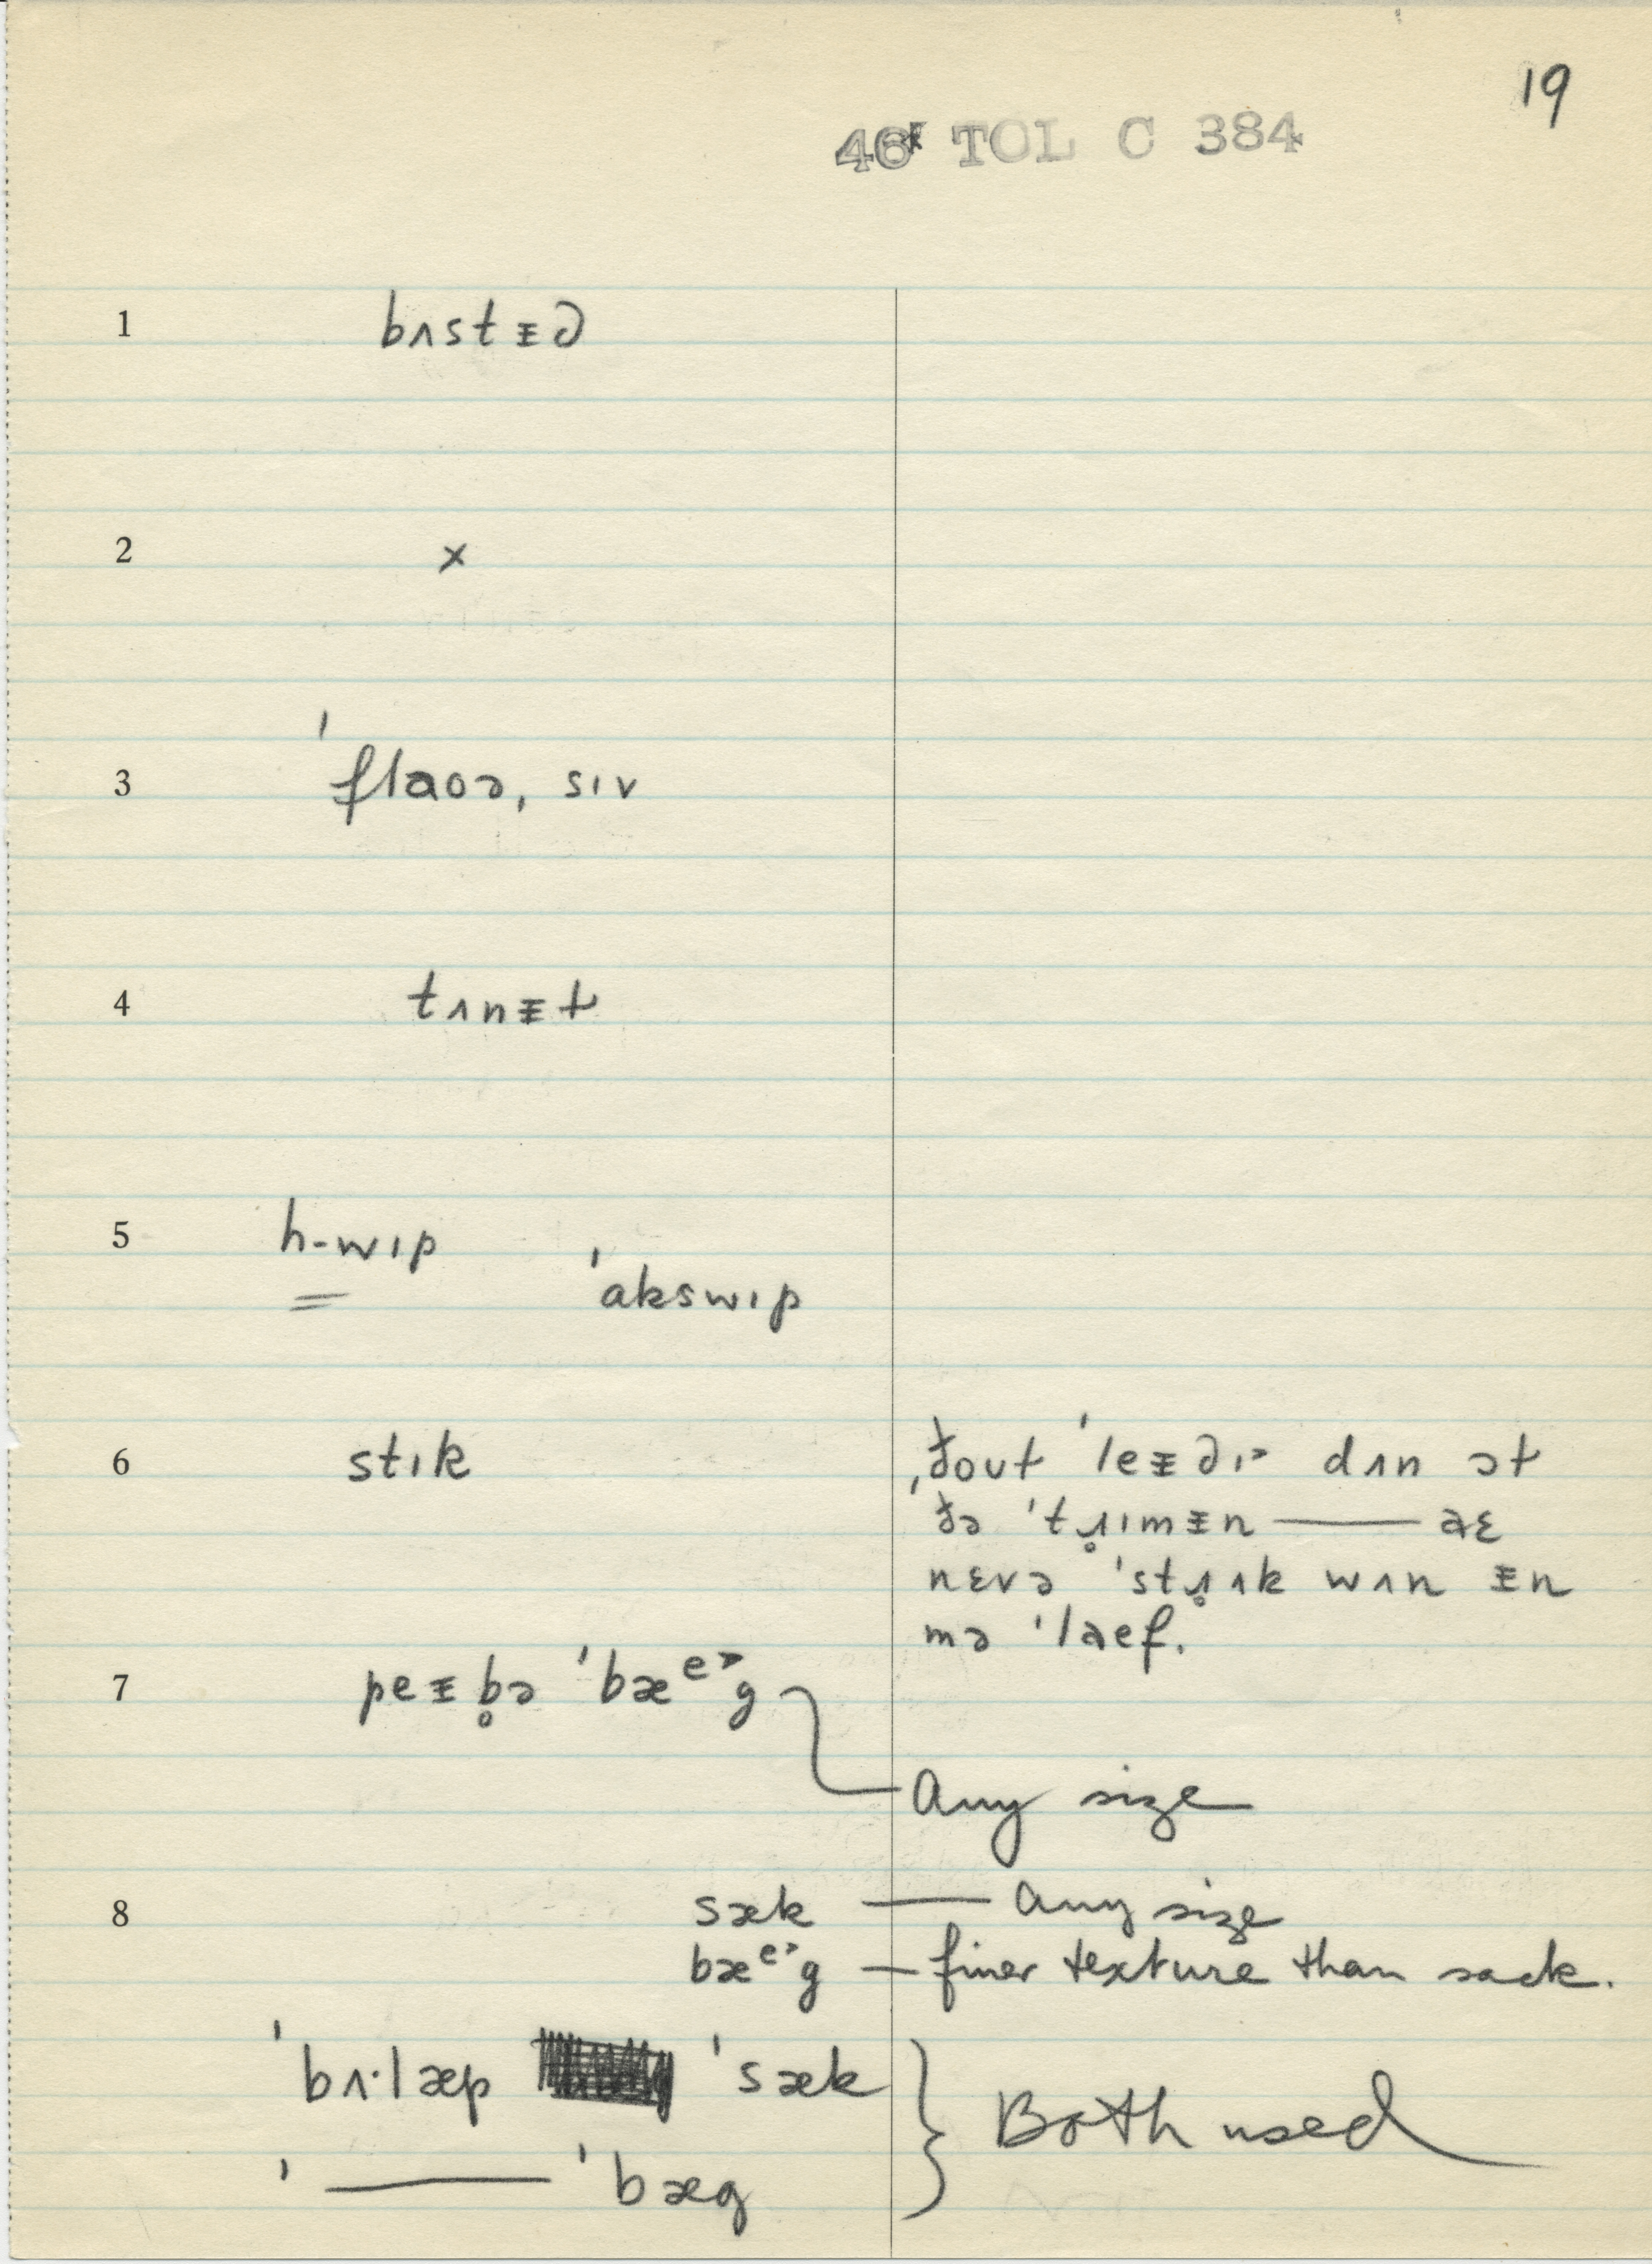 19
46* TOL C 384
1 bʌstᵻd
2 x
3 ˈflaʊə, sɪv
4 tʌnᵻt
5 h-wɪp ˈɑkswɪp
6 stɪk
ˌðoʊt ˈleᵻdɪ˃ dʌn ət
ðə ˈtɹ̥ɪmᵻn — aɛ
nɛvə ˈstɹ̥ʌk wʌn ᵻn
mə ˈlaef.
7 peᵻb̥ə ˈbæᵉ˃g
Any size
8 sæk — Any size
bæᵉ˃g — finer texture than sack.
ˈbʌ·læp ˈsæk
ˈ — ˈbæg } Both used